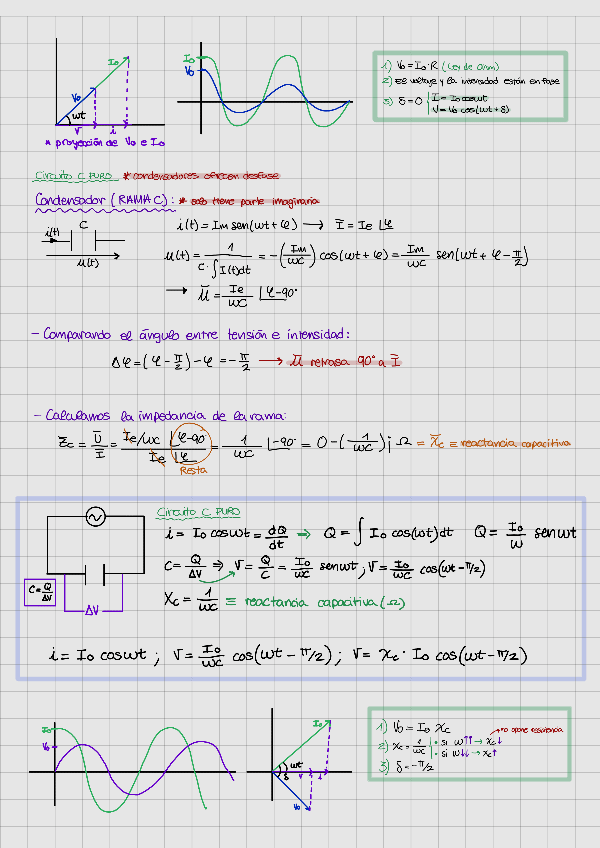 I₀
V₀
wt
V
i
* proyección de V₀ e I₀
I₀
V₀
1) V₀ = I₀ · R (Ley de Ohm)
2) El voltaje y la intensidad están en fase
3) δ = 0 | I = I₀ coswt
V = V₀ cos(wt + δ)
Circuito C PURO * condensadores ofrecen desfase
Condensador (RAMA C): * solo tiene parte imaginaria
i(t) C
u(t)
i(t) = Im sen(wt + φ) → Ī = Ie ∠φ
u(t) = 1 / C · ∫ I(t)dt = -(Im/wC) cos(wt + φ) = Im/wC sen(wt + φ - π/2)
→ ū = Ie/wC ∠φ-90°
- Comparando el ángulo entre tensión e intensidad:
Δφ = (φ - π/2) - φ = - π/2 → ū retrasa 90° a Ī
- Calculamos la impedancia de la rama:
Z̄c = Ū/Ī = Ie/wc ∠φ-90° / Ie ∠φ = 1/wC ∠-90° = 0 - (1/wC)j Ω = X̄c ≡ reactancia capacitiva
Resta
Circuito C PURO
i = I₀ coswt = dQ/dt ⇒ Q = ∫ I₀ cos(wt)dt Q = I₀/w senwt
C = Q/ΔV ⇒ V = Q/C = I₀/wC senwt ; V = I₀/wC cos(wt - π/2)
Xc = 1/wC ≡ reactancia capacitiva (Ω)
C = Q/ΔV
ΔV
i = I₀ coswt ; V = I₀/wC cos(wt - π/2) ; V = Xc · I₀ cos(wt - π/2)
I₀
V₀
I₀
wt
δ
V
i
V₀
1) V₀ = I₀ Xc
→ no opone resistencia
2) Xc = 1/wC | · si w↑↑ → Xc↓
· si w↓↓ → Xc↑
3) δ = -π/2